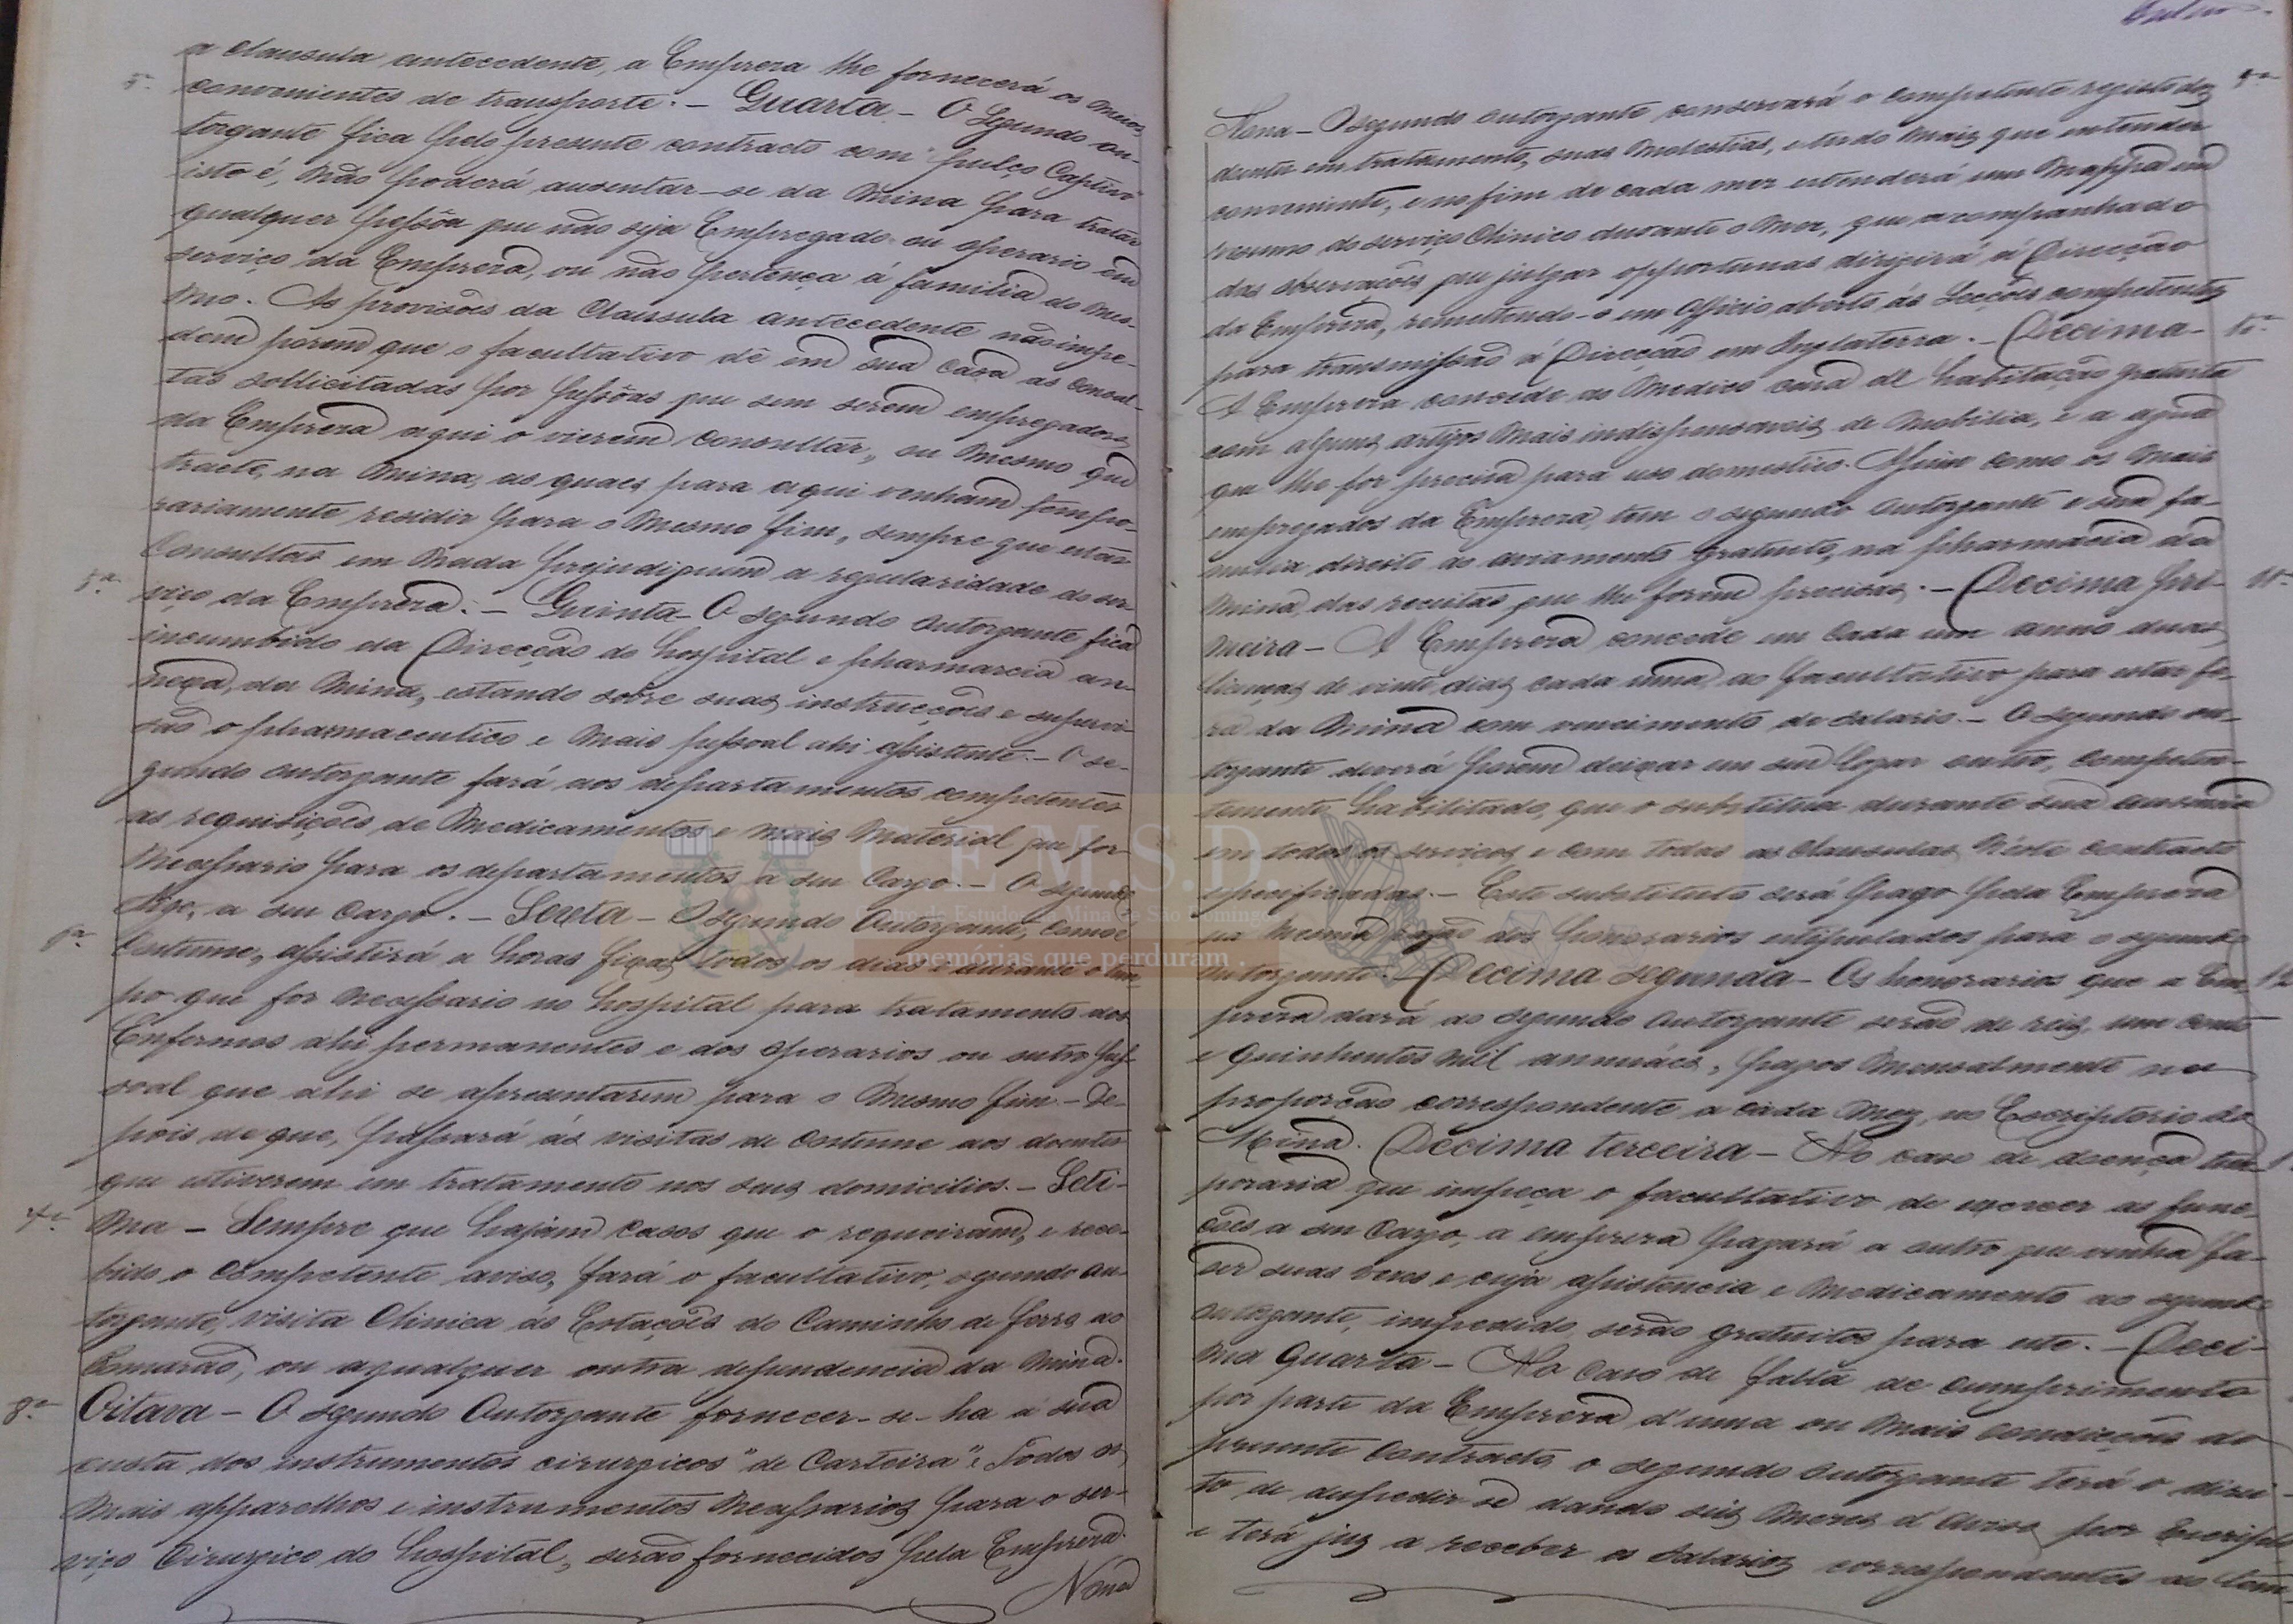 a clausula antecedente, a Empreza lhe fornecerá os meios
5ª
convenientes de transporte. – Quarta – O Segundo ou-
torgante fica pelo presente contracto com "pulço Captivo"
isto é, não poderá ausentar-se da Mina para tratar
qualquer pessôa que não seja Empregado ou operario em
serviço da Empreza, ou não pertença á familia do mes-
mo. As provisões da Claúsula antecedente não impe-
dem porem que o facultativo dê em sua casa as consul-
tas sollicitadas por pessôas que sem serem empregados
da Empreza aqui o vierem consultar, ou mesmo que
tracte, na Mina, as quaes para aqui venham tempo-
rariamente residir para o mesmo fim, sempre que estas
Consultas em nada prejudiquem a regularidade do ser-
5ª
viço da Empreza. – Quinta – O segundo outorgante fica
incumbido da Direcção do hospital e pharmarcia an-
nexa, da Mina, estando sobre suas instrucções e supervi-
são o pharmaceutico e mais pessoal ahi assistente. – O se-
gundo outorgante fará aos departamentos competentes
as requisições de Medicamentos e mais material que for
necessario para os departamentos a seu cargo. – O segundo
digo, a seu cargo. – Sexta – O segundo Outorgante, como é
6ª
Costume, assistirá a horas fixas todos os dias e durante o tem-
po que for necessario no hospital para tratamento dos
Enfermos ahi permanentes e dos operarios ou outro pes-
soal que ahi se apresentarem para o mesmo fim – De-
pois de que, passará ás visitas de costume aos doentes
que estiverem em tratamento nos seus domicilios. – Seti-
7ª
ma – Sempre que hajam casos que o requeiram, e rece-
bido o competente aviso, fará o facultativo, segundo ou-
torgante, visita Clinica ás Estações do Caminho de ferro ao
Pomarão, ou a qualquer outra dependencia da Mina.
8ª
Oitava – O segundo Outorgante fornecer-se-ha á sua
custa dos instrumentos cirurgicos "de Carteira". Todos os
mais apparelhos e instrumentos necessarios para o ser-
viço Cirurgico do hospital, serão fornecidos pela Empreza.
Nona
Nona – O segundo outorgante conservará o competente registo dos
9ª
doentes em tratamento, suas molestias, e tudo mais que entender
conveniente, e no fim de cada mez estenderá um Mappa em
resumo do serviço Clinico durante o mez, que acompanhado
das observações que julgar opportunas dirigirá á Direcção
da Empreza, remettendo-o em Officio aberto ás Secções competentes
para transmissão á Direcção em Inglaterra. – Decima –
10ª
A Empreza concede ao Medico casa de habitação gratuita
com alguns artigos mais indispensaveis de mobilia, e a agua
que lhe for precisa para uso domestico. Assim como os mais
empregados da Empreza, tem o segundo outorgante e sua fa-
milia direito ao aviamento gratuito, na pharmacia da
Mina, das receitas que lhe forem precisas. – Decima pri-
11ª
meira – A Empreza concede em cada um anno duas
licenças de vinte dias cada uma, ao facultativo para estar fo-
ra da Mina com vencimento de salario. – O segundo ou-
torgante deverá porem deixar em seu logar outro, competen-
temente habilitado, que o substitua durante sua ausencia
em todos os serviços e com todas as clausulas n'este contracto
especificadas. – Este substituto será pago pela Empreza
na mesma razão dos honorarios estipulados para o segundo
outorgante. – Decima segunda – Os honorarios que a Em-
12
preza dará ao segundo outorgante serão de reis, um conto
e quinhentos mil annuáes, pagos mensalmente na
proporcão correspondente a cada mez, no Escriptorio da
Mina. Decima terceira – No caso de doença tem-
poraria que impeça o facultativo de exercer as func-
ções a seu cargo, a empreza pagará a outro que venha fa-
zer suas vezes e cuja assistencia e medicamento ao segundo
outorgante, impedido, serão gratuitos para este. – Deci-
ma Quarta – No caso de falta de cumprimento
por parte da Empreza d'uma ou mais condicções do
presente contracto, o segundo outorgante terá o direi-
to de despedir-se dando seis mezes d'aviso, por Escripto
e terá juz a receber os salarios correspondentes ao tem-
C.E.M.S.D.
Centro de Estudos da Mina de São Domingos
memórias que perduram .